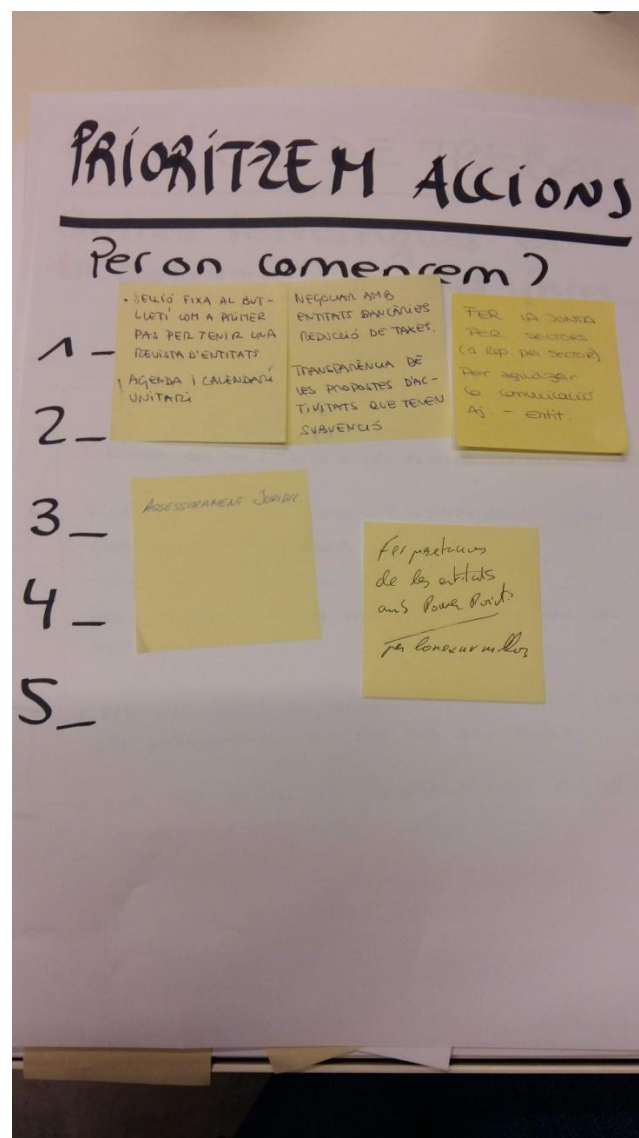 PRIORITZEM ACCIONS
Per on comencem?
1_
2_
3_
4_
5_
• SECCIÓ FIXA AL BUT-
LLETÍ COM A PRIMER
PAS PER TENIR UNA
REVISTA D'ENTITATS
AGENDA I CALENDARI
UNITARI
NEGOCIAR AMB
ENTITATS BANCÀRIES
REDUCCIÓ DE TAXES.
TRANSPARÈNCIA DE
LES PROPOSTES D'AC-
TIVITATS QUE TENEN
SUBVENCIÓ
FER LA JUNTA
PER SECTORS
(1 Rep. per SECTOR)
Per agilitzar
la comunicació
Aj. - entit.
ASSESSORAMENT JURIDIC
Fer
de les entitats
amb Power Point
per